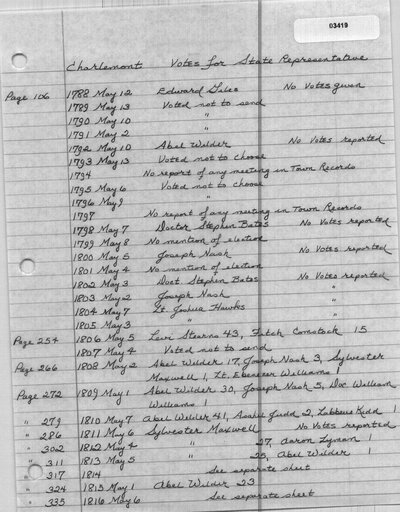 03419
Charlemont Votes for State Representative
Page 106 1788 May 12 Edward Giles No Votes given
1789 May 13 Voted not to send
1790 May 10 "
1791 May 2 "
1792 May 10 Abel Wilder No Votes reported
1793 May 13 Voted not to choose
1794 No report of any meeting in Town Records
1795 May 6 Voted not to choose
1796 May 9 "
1797 No report of any meeting in Town Records
1798 May 7 Doctor Stephen Bates No Votes reported
1799 May 8 No mention of election
1800 May 5 Joseph Nash No Votes reported
1801 May 4 No mention of election
1802 May 3 Doct. Stephen Bates No Votes reported
1803 May 2 Joseph Nash "
1804 May 7 Lt. Joshua Hawks "
1805 May 3 " "
Page 254 1806 May 5 Levi Stearns 43, Fitch Comstock 15
1807 May 4 Voted not to send
Page 266 1808 May 2 Abel Wilder 17, Joseph Nash 3, Sylvester
Maxwell 1, Lt. Ebenezer Williams 1
Page 272 1809 May 1 Abel Wilder 30, Joseph Nash 5, Doc William
Williams 1
" 279 1810 May 7 Abel Wilder 41, Asahel Judd 2, Lebbeus Kidd 1
" 286 1811 May 6 Sylvester Maxwell No Votes reported
" 302 1812 May 4 " 27, Aaron Lyman 1
" 311 1813 May 5 " 25, Abel Wilder 1
" 317 1814 See separate sheet
" 324 1815 May 1 Abel Wilder 23
" 335 1816 May 6 See separate sheet